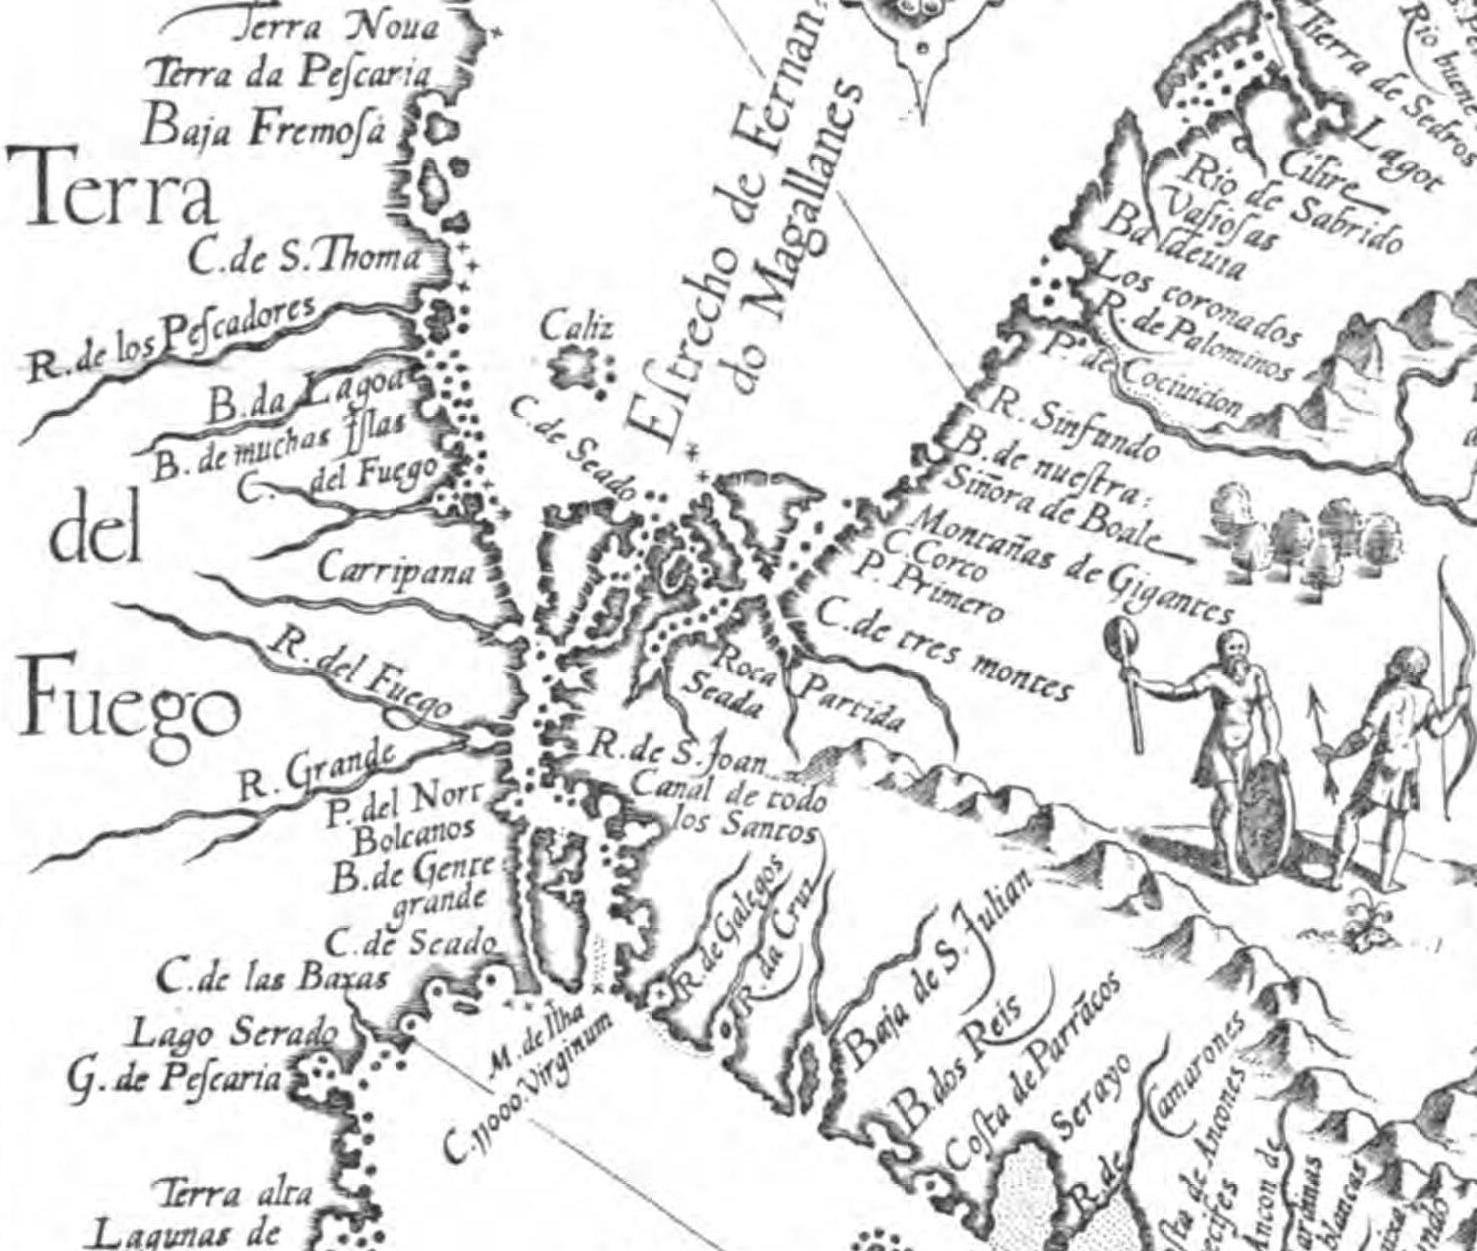 Terra Noua
Terra da Peſcaria
Baja Fremoſa
Terra
C. de S. Thoma
R. de los Peſcadores
B. da Lagoa
B. de muchas Iſlas
C. del Fuego
del
Carripana
R. del Fuego
Fuego
R. Grande
P. del Nort
Bolcanos
B. de Gente
grande
C. de Seado
C. de las Baxas
Lago Serado
G. de Peſcaria
Terra alta
Lagunas de
Eſtrecho de Fernan:
do Magallanes
Caliz
C. de Seado
M. de Ilha
C. 11000. Virginum
Roca
Partida
Seada
R. de S. Joan
Canal de todo
los Santos
R. de Galegos
R. da Cruz
Baja de S. Julian
B. dos Reis
Coſta de Parrãcos
Serayo
R. de
Camarones
de Ancones
Ancon de
blancas
Tierra de Sedros
Rio buene
Lagot
Cilire
Rio de Sabrido
Valioſas
Baldeuia
Los coronados
R. de Palominos
P. de Cociuicion
R. Sinfundo
B. de nueſtra:
Siñora de Boale
Montañas de Gigantes
C. Corco
P. Primero
C. de tres montes